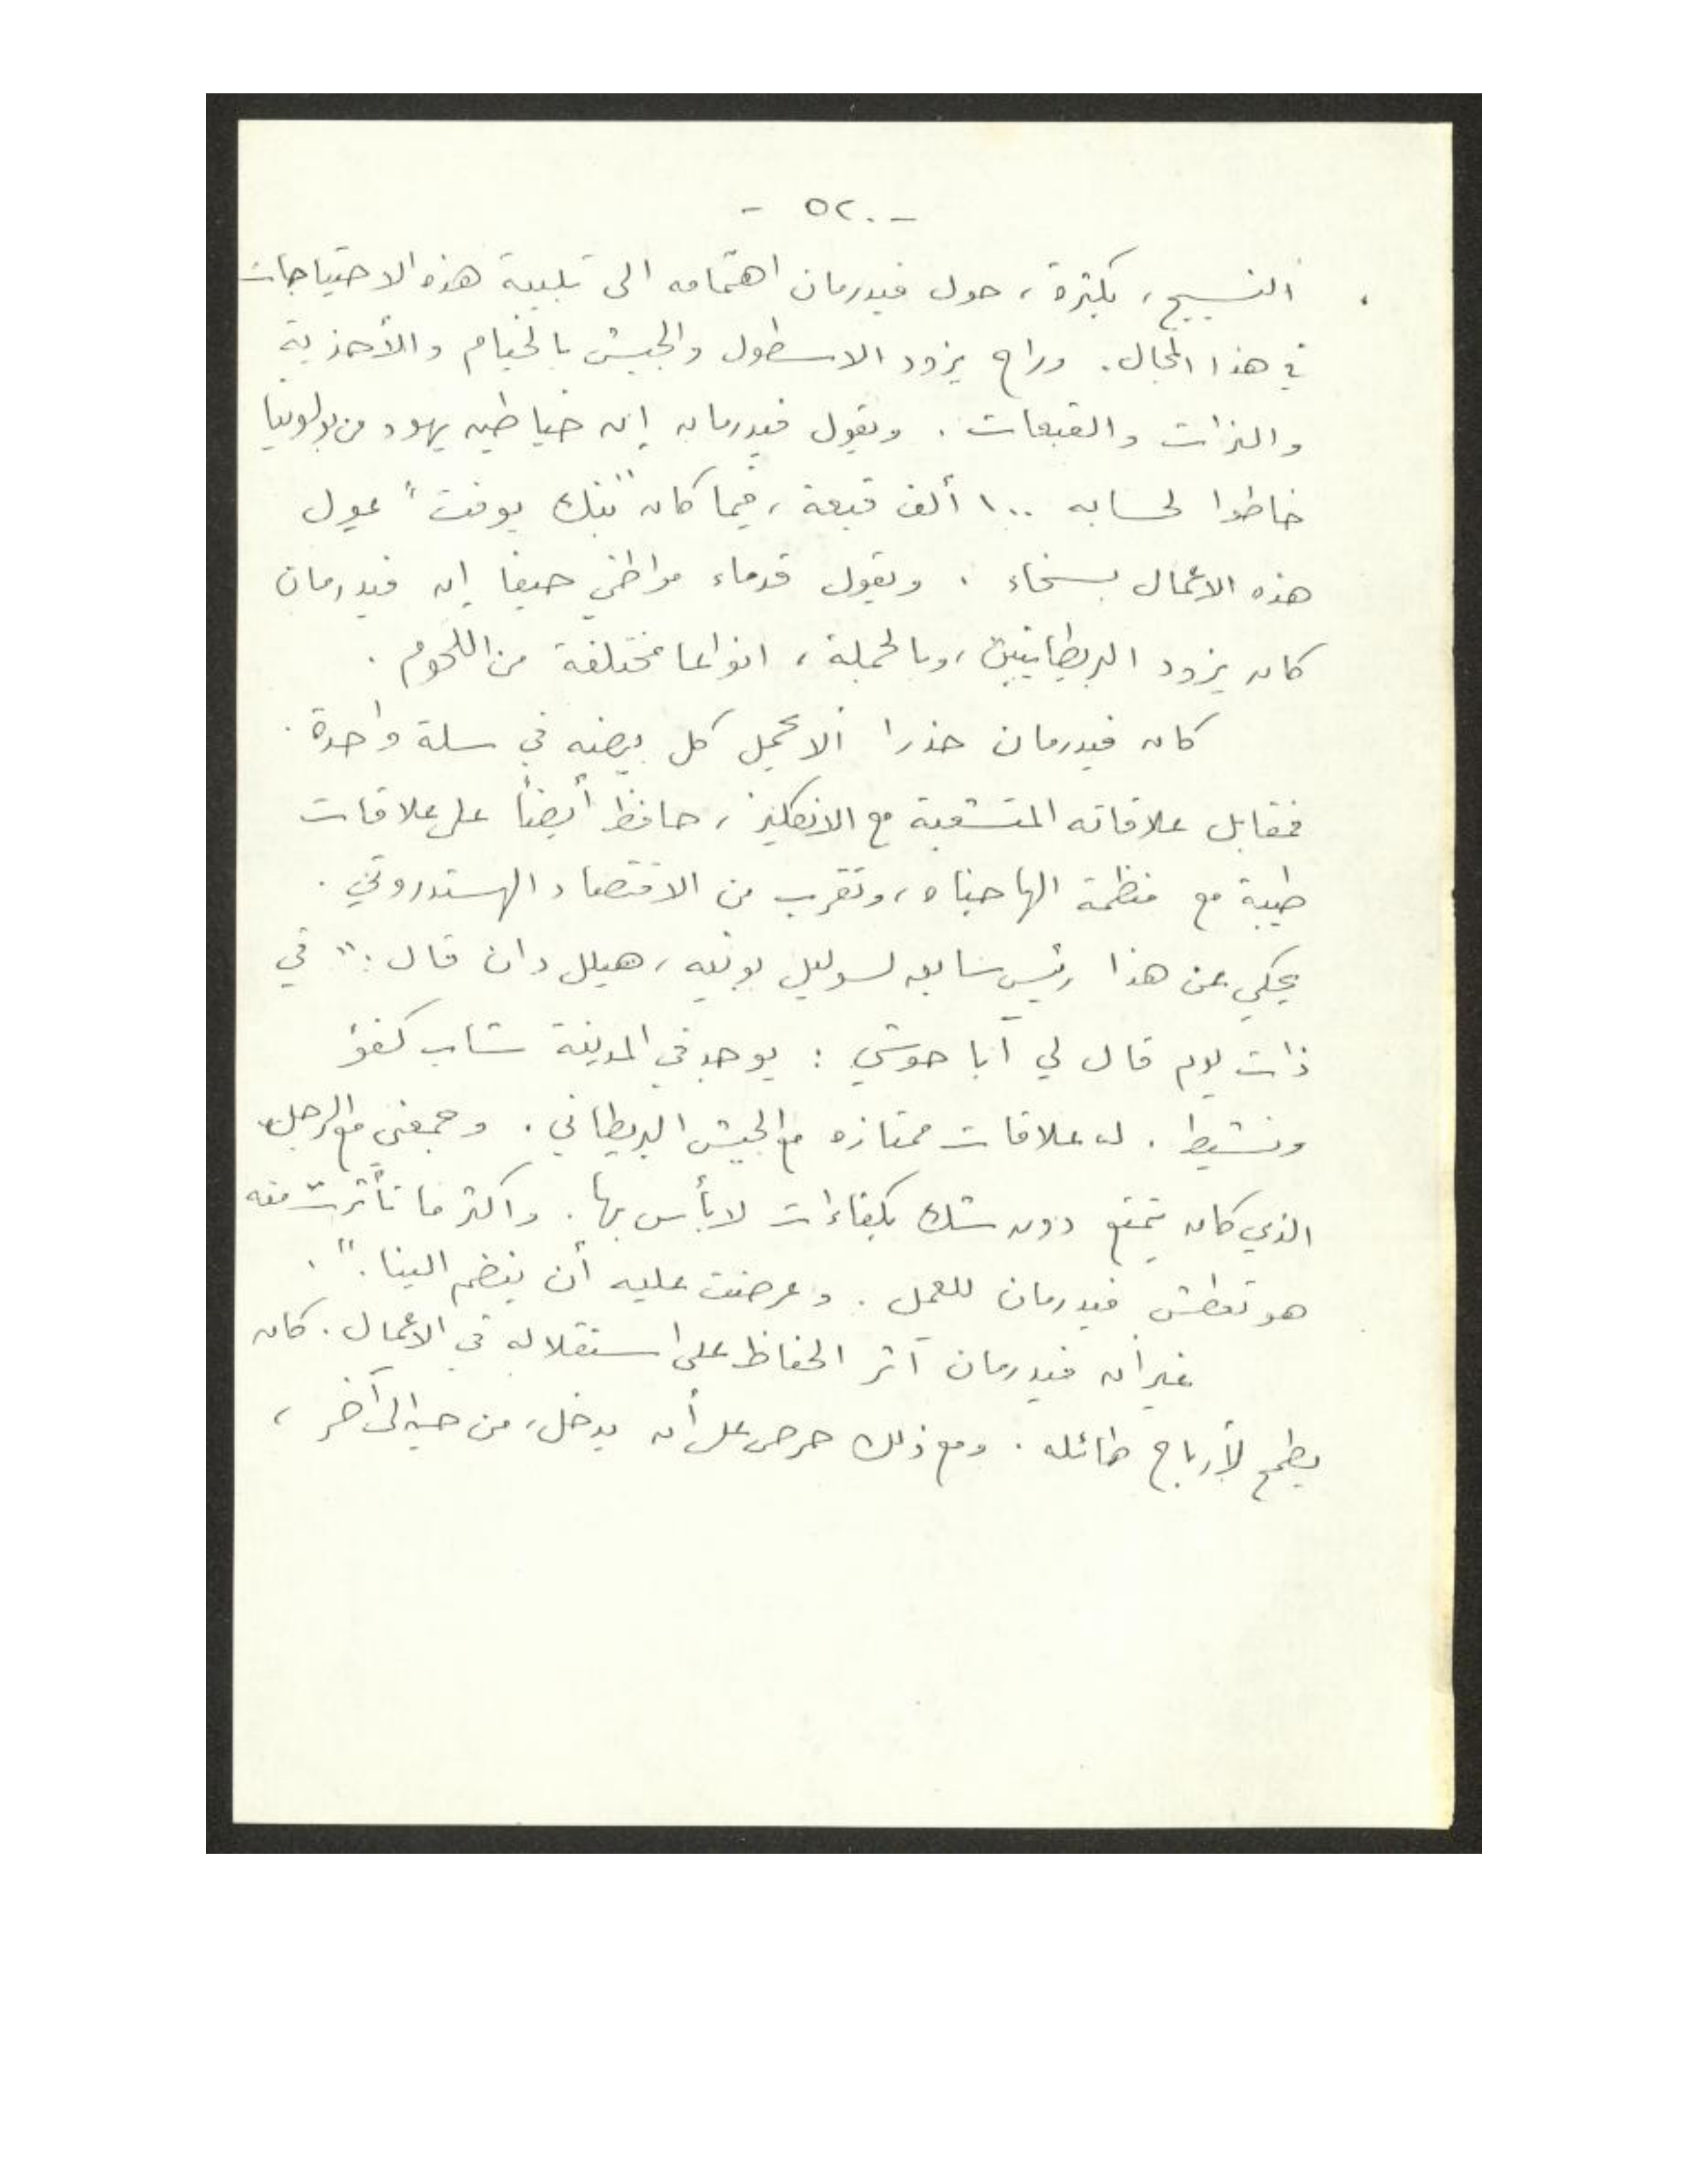 - ٥٢٠ -
النسيج، بكثرة، حول فيدرمان اهتمامه الى تلبية هذه الاحتياجات
في هذا المجال. وراح يزود الاسطول والجيش بالخيام والأحذية
والبزات والقبعات. ويقول فيدرمان إن خياطين يهود من بولونيا
خاطوا لحسابه ١٠٠ ألف قبعة، فيما كان "بنك يوفت" يمول
هذه الاعمال بسخاء. ويقول قدماء مواطني حيفا إن فيدرمان
كان يزود البريطانيين، وبالجملة، انواعا مختلفة من اللحوم.
كان فيدرمان حذرا ألا يحمل كل بيضه في سلة واحدة.
فمقابل علاقاته المتشعبة مع الانكليز، حافظ أيضاً على علاقات
طيبة مع منظمة الهاجناه، وتقرب من الاقتصاد الهستدروتي.
يحكي عن هذا رئيس سابق لسوليل بونيه، هيلل دان قال: "في
ذات يوم قال لي آبا حوشي: يوجد في المدينة شاب كفؤ
ونشيط. له علاقات ممتازه مع الجيش البريطاني. وجمعني مع الرجل
الذي كان يتمتع دون شك بكفاءات لا بأس بها. واكثر ما تأثرت منه
هو تعطش فيدرمان للعمل. وعرضت عليه أن ينضم الينا.".
غير أن فيدرمان آثر الحفاظ على استقلاله في الاعمال. كان
يطمح لأرباح طائله. ومع ذلك حرص على أن يدخل، من حين الى آخر،